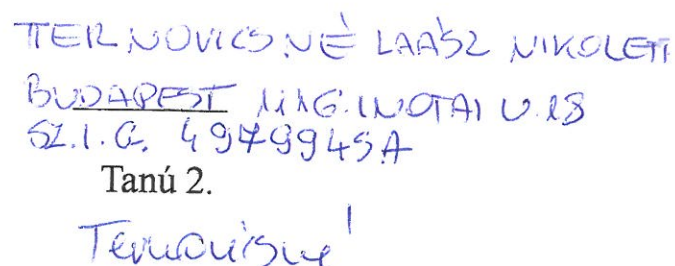 TERNOVICSNÉ LAÁSZ NIKOLETT
BUDAPEST INOTAI U. 18
SZ.I.G. 497994SA
Tanú 2.
Ternovicsné